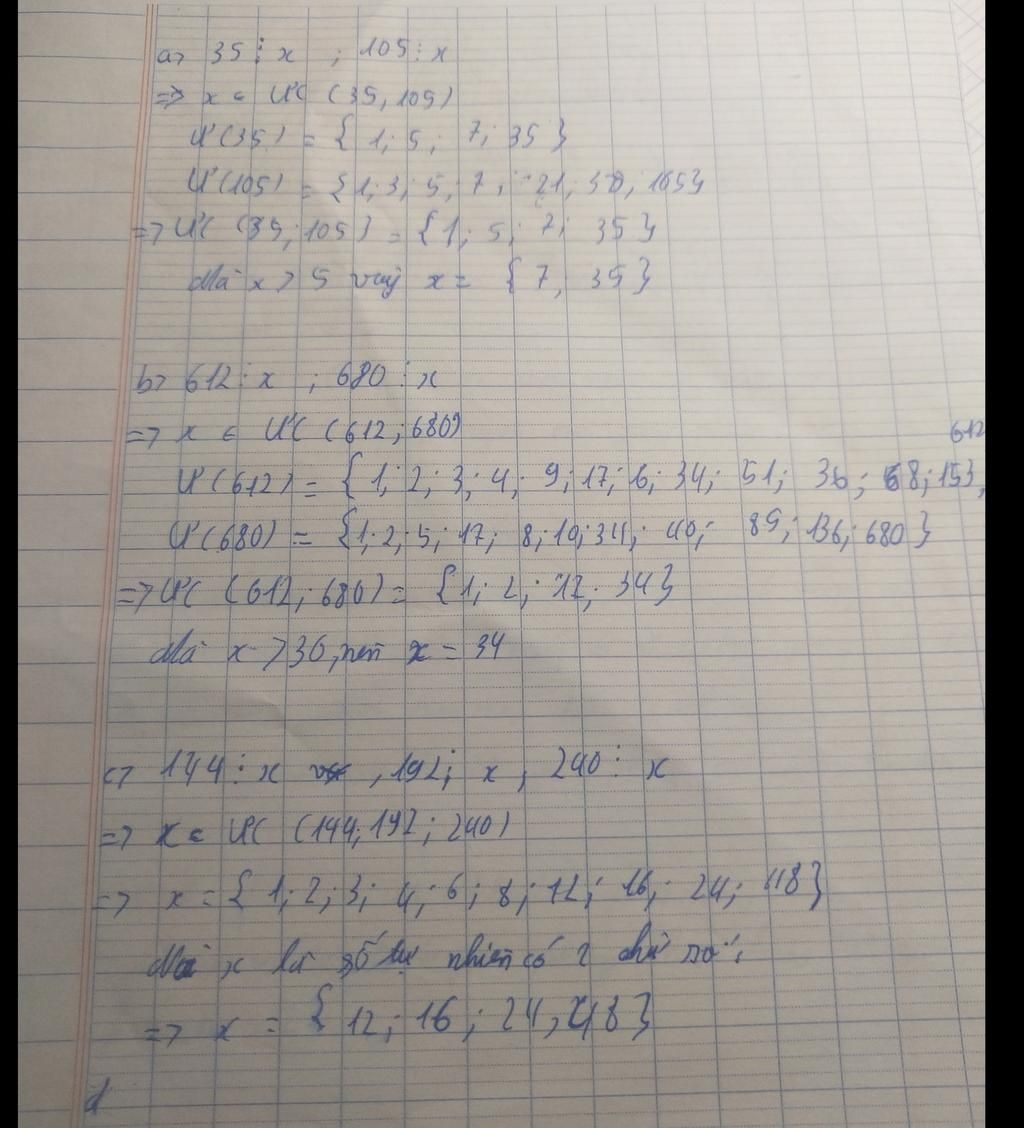 a> 35 ⋮ x ; 105 ⋮ x
=> x ∈ ƯC (35, 105)
Ư(35) = { 1; 5; 7; 35 }
Ư(105) = {1; 3; 5; 7; 21; 105}
=> ƯC (35; 105) = {1; 5; 7; 35}
Mà x > 5 vậy x = { 7, 35 }
b> 612 ⋮ x ; 680 ⋮ x
=> x ∈ ƯC (612; 680)
612
Ư(612) = { 1; 2; 3; 4; 9; 17; 6; 34; 51; 36; 68; 153,
Ư(680) = {1; 2; 5; 17; 8; 10; 34; 40; 85; 136; 680 }
=> ƯC (612; 680) = {1; 2; 17; 34}
Mà x > 30, nên x = 34
c> 144 ⋮ x , 192 ⋮ x , 240 ⋮ x
=> x ∈ ƯC (144; 192; 240)
=> x = { 1; 2; 3; 4; 6; 8; 12; 16; 24; 48 }
Mà x là số tự nhiên có 2 chữ số
=> x = { 12; 16; 24, 48 }
d